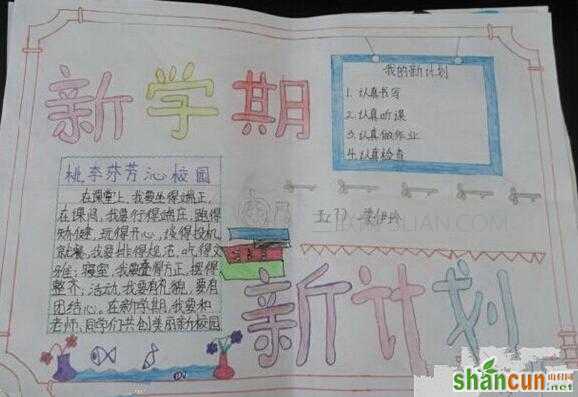 新学期
我的新计划
1. 认真书写
2. 认真听课
3. 认真做作业
4. 认真检查
桃李芬芳沁校园
在课堂上,我要坐得端正,
在课间,我要行得端庄,跑得
矫健,玩得开心,谈得投机
就餐,我要排得规范,吃得文
雅;寝室,我要叠得方正,摆得
整齐;活动,我要有礼貌,要有
团结心。在新学期,我要和
老师,同学们共创美丽新校园
新计划
shancun
山村网
.net